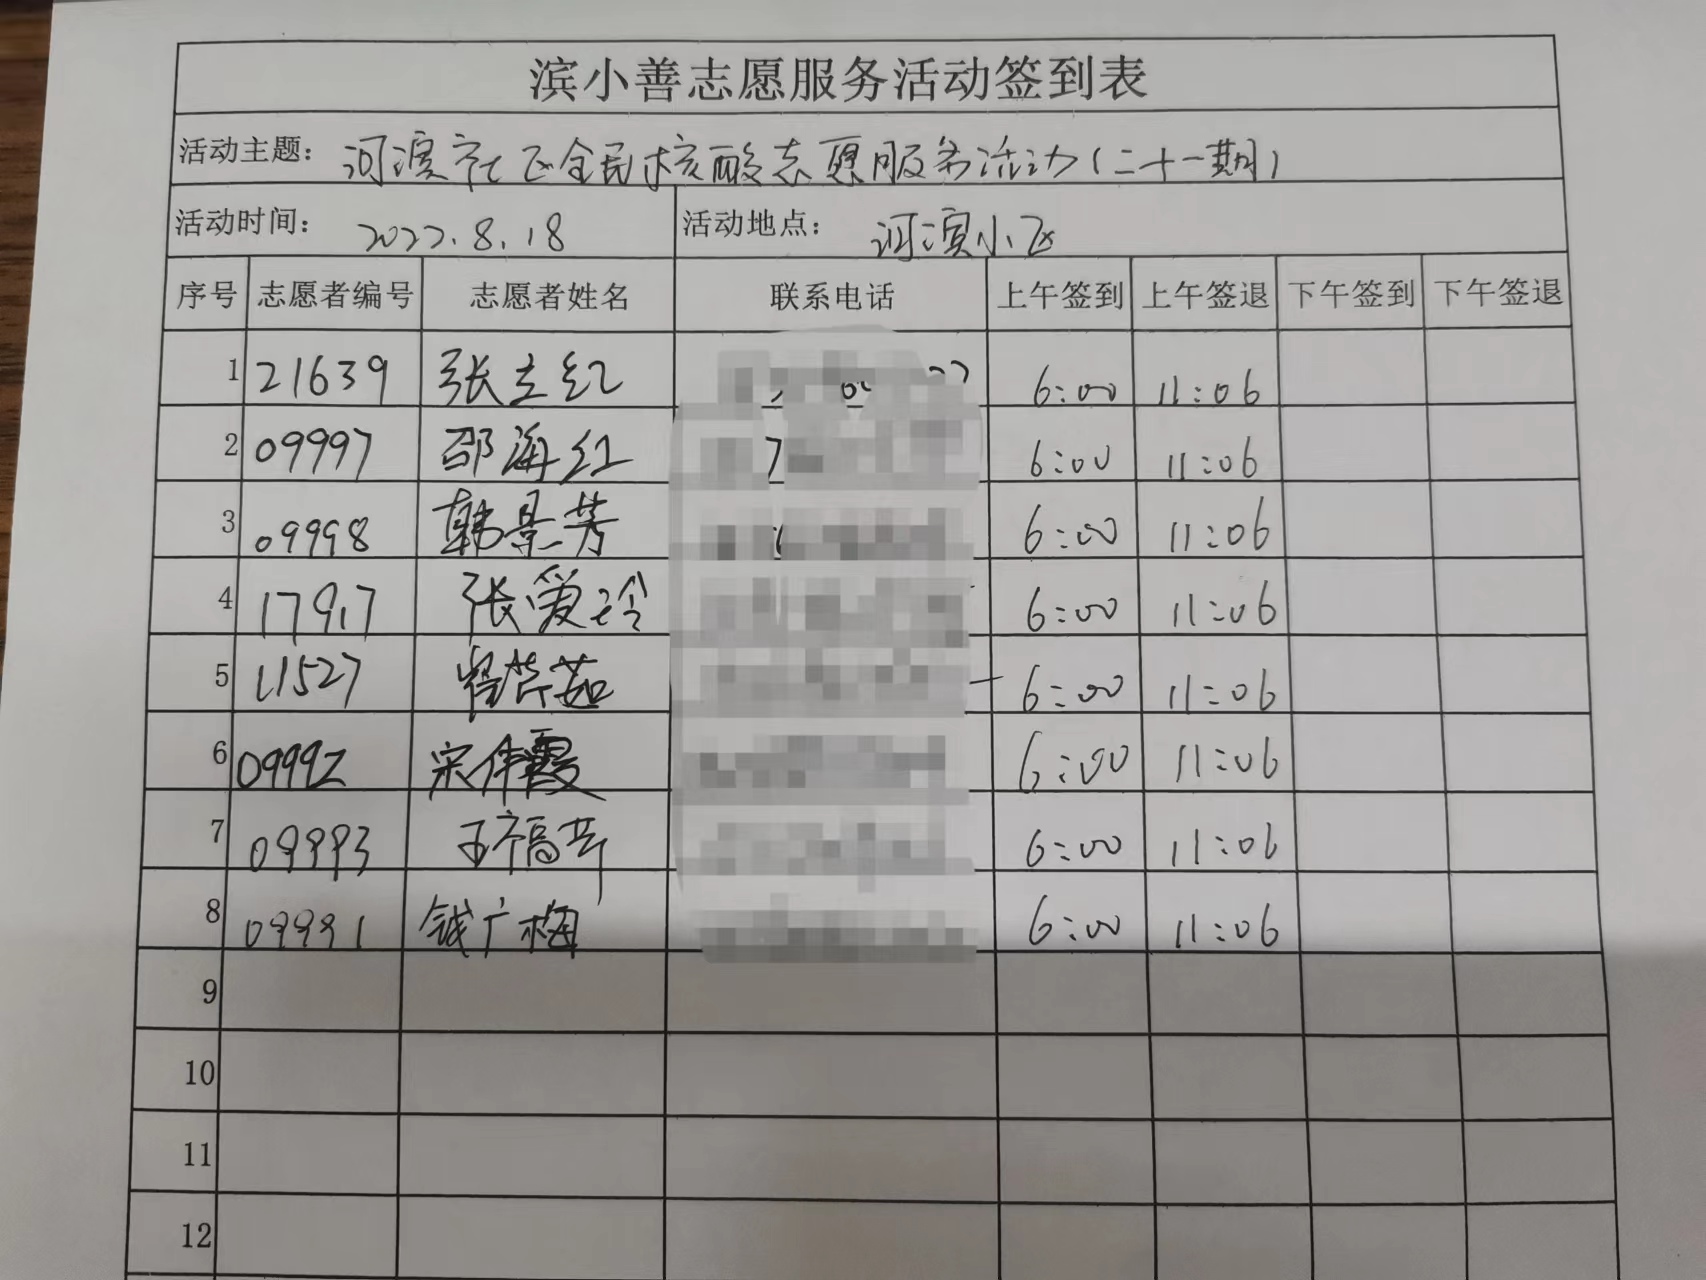 滨小善志愿服务活动签到表
活动主题：河滨社区全民核酸志愿服务活动（二十一期）
活动时间：2022.8.18 活动地点：河滨小区
序号 志愿者编号 志愿者姓名 联系电话 上午签到 上午签退 下午签到 下午签退
1 21639 张立红 6:00 11:06
2 09997 邵海红 6:00 11:06
3 09998 韩景芳 6:00 11:06
4 17917 张爱玲 6:00 11:06
5 11527 6:00 11:06
6 09992 宋伟霞 6:00 11:06
7 09993 6:00 11:06
8 09991 钱广梅 6:00 11:06
9
10
11
12